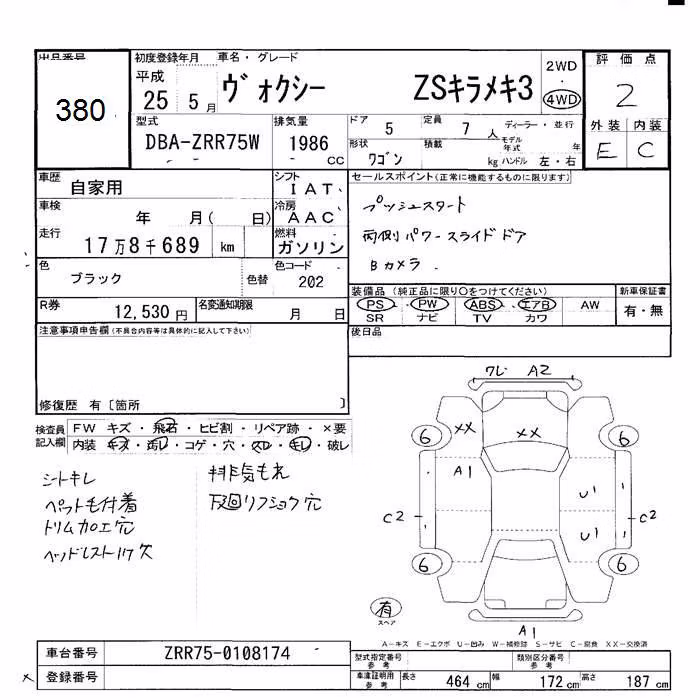 出品番号 初度登録年月 車名・グレード 2WD 評価点
380 平成 25 5月 ヴォクシー ZSキラメキ3 ・ 4WD 2
型式 排気量 ドア 5 定員 7人 ディーラー・並行 外装 内装
DBA-ZRR75W 1986 cc 形状 ワゴン 積載 kg モデル年式 年 ハンドル 左・右 E C
車歴 自家用 シフト IAT セールスポイント(正常に機能するものに限ります)
車検 年 月( 日) 冷房 AAC プッシュスタート
走行 17万8千689 km 燃料 ガソリン 両側パワースライドドア
色 ブラック 色替 色コード 202 Bカメラ
R券 12,530円 名変通知期限 月 日 装備品(純正品に限り○をつけてください) 新車保証書
PS PW ABS エアB AW 有・無
SR ナビ TV カワ
注意事項申告欄(不具合内容等は具体的に記入して下さい) 後日品
修復歴 有〔箇所 〕
検査員記入欄 FW キズ・飛石・ヒビ割・リペア跡・×要
内装 キズ・汚レ・コゲ・穴・スレ・キレ・破レ
シートキレ 排気もれ
ペット毛付着
トリム加工穴
ヘッドレスト1ケ欠
ワレ A2
XX XX
6 6
A1 U1
C2 C2
U1
6 6
有 スペア
A1
A-キズ E-エクボ U-凹み W-補修跡 S-サビ C-腐食 XX-交換済
車台番号 ZRR75-0108174 型式指定番号 参考 類別区分番号 参考
登録番号 車庫証明用 参考 長さ 464 cm 幅 172 cm 高さ 187 cm